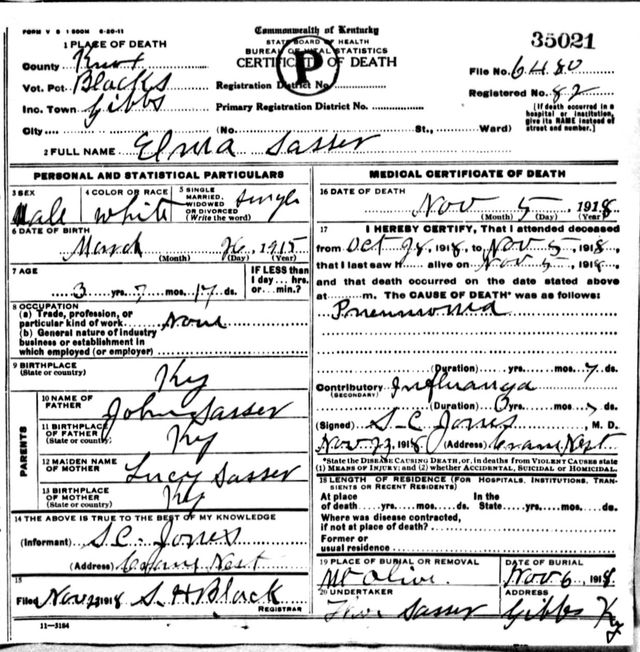 FORM V S 1 500M 8-20-11
Commonwealth of Kentucky
STATE BOARD OF HEALTH
BUREAU OF VITAL STATISTICS
CERTIFICATE OF DEATH
P
35021
1 PLACE OF DEATH
County Knox
Vot. Pct. Blacks
Inc. Town Gibbs
City (No. St., Ward)
Registration District No.
Primary Registration District No.
File No. 6480
Registered No. 82
[If death occurred in a hospital or institution, give its NAME instead of street and number.]
2 FULL NAME Elma Sasser
PERSONAL AND STATISTICAL PARTICULARS
3 SEX Male
4 COLOR OR RACE white
5 SINGLE MARRIED, WIDOWED OR DIVORCED (Write the word) single
6 DATE OF BIRTH
March 26, 1915
(Month) (Day) (Year)
7 AGE
3 yrs. 7 mos. 17 ds.
IF LESS than 1 day... hrs. or min.?
8 OCCUPATION
(a) Trade, profession, or particular kind of work None
(b) General nature of industry business or establishment in which employed (or employer)
9 BIRTHPLACE
(State or country) Ky
PARENTS
10 NAME OF FATHER John Sasser
11 BIRTHPLACE OF FATHER (State or country) Ky
12 MAIDEN NAME OF MOTHER Lucy Sasser
13 BIRTHPLACE OF MOTHER (State or country) Ky
14 THE ABOVE IS TRUE TO THE BEST OF MY KNOWLEDGE
(Informant) S.C. Jones
(Address) Crane Nest
15
Filed Nov 23 1918 S. H. Black
REGISTRAR
11-3184
MEDICAL CERTIFICATE OF DEATH
16 DATE OF DEATH
Nov 5, 1918
(Month) (Day) (Year)
17 I HEREBY CERTIFY, That I attended deceased
from Oct 28, 1918, to Nov 5, 1918,
that I last saw h alive on Nov 5, 1918,
and that death occurred on the date stated above
at m. The CAUSE OF DEATH* was as follows:
Pneumonia
(Duration) yrs. mos. 7 ds.
Contributory Influanza
(SECONDARY)
(Duration) 0 yrs. mos. ds.
(Signed) S-C Jones, M. D.
Nov 23, 1918 (Address) Crane Nest
*State the DISEASE CAUSING DEATH, or, in deaths from VIOLENT CAUSES state (1) MEANS OF INJURY; and (2) whether ACCIDENTAL, SUICIDAL or HOMICIDAL.
18 LENGTH OF RESIDENCE (FOR HOSPITALS, INSTITUTIONS, TRANSIENTS OR RECENT RESIDENTS)
At place of death yrs. mos. ds. In the State yrs. mos. ds.
Where was disease contracted, if not at place of death?
Former or usual residence
19 PLACE OF BURIAL OR REMOVAL Mt Olive
DATE OF BURIAL Nov 6, 1918
20 UNDERTAKER Sasser
ADDRESS Gibbs Ky